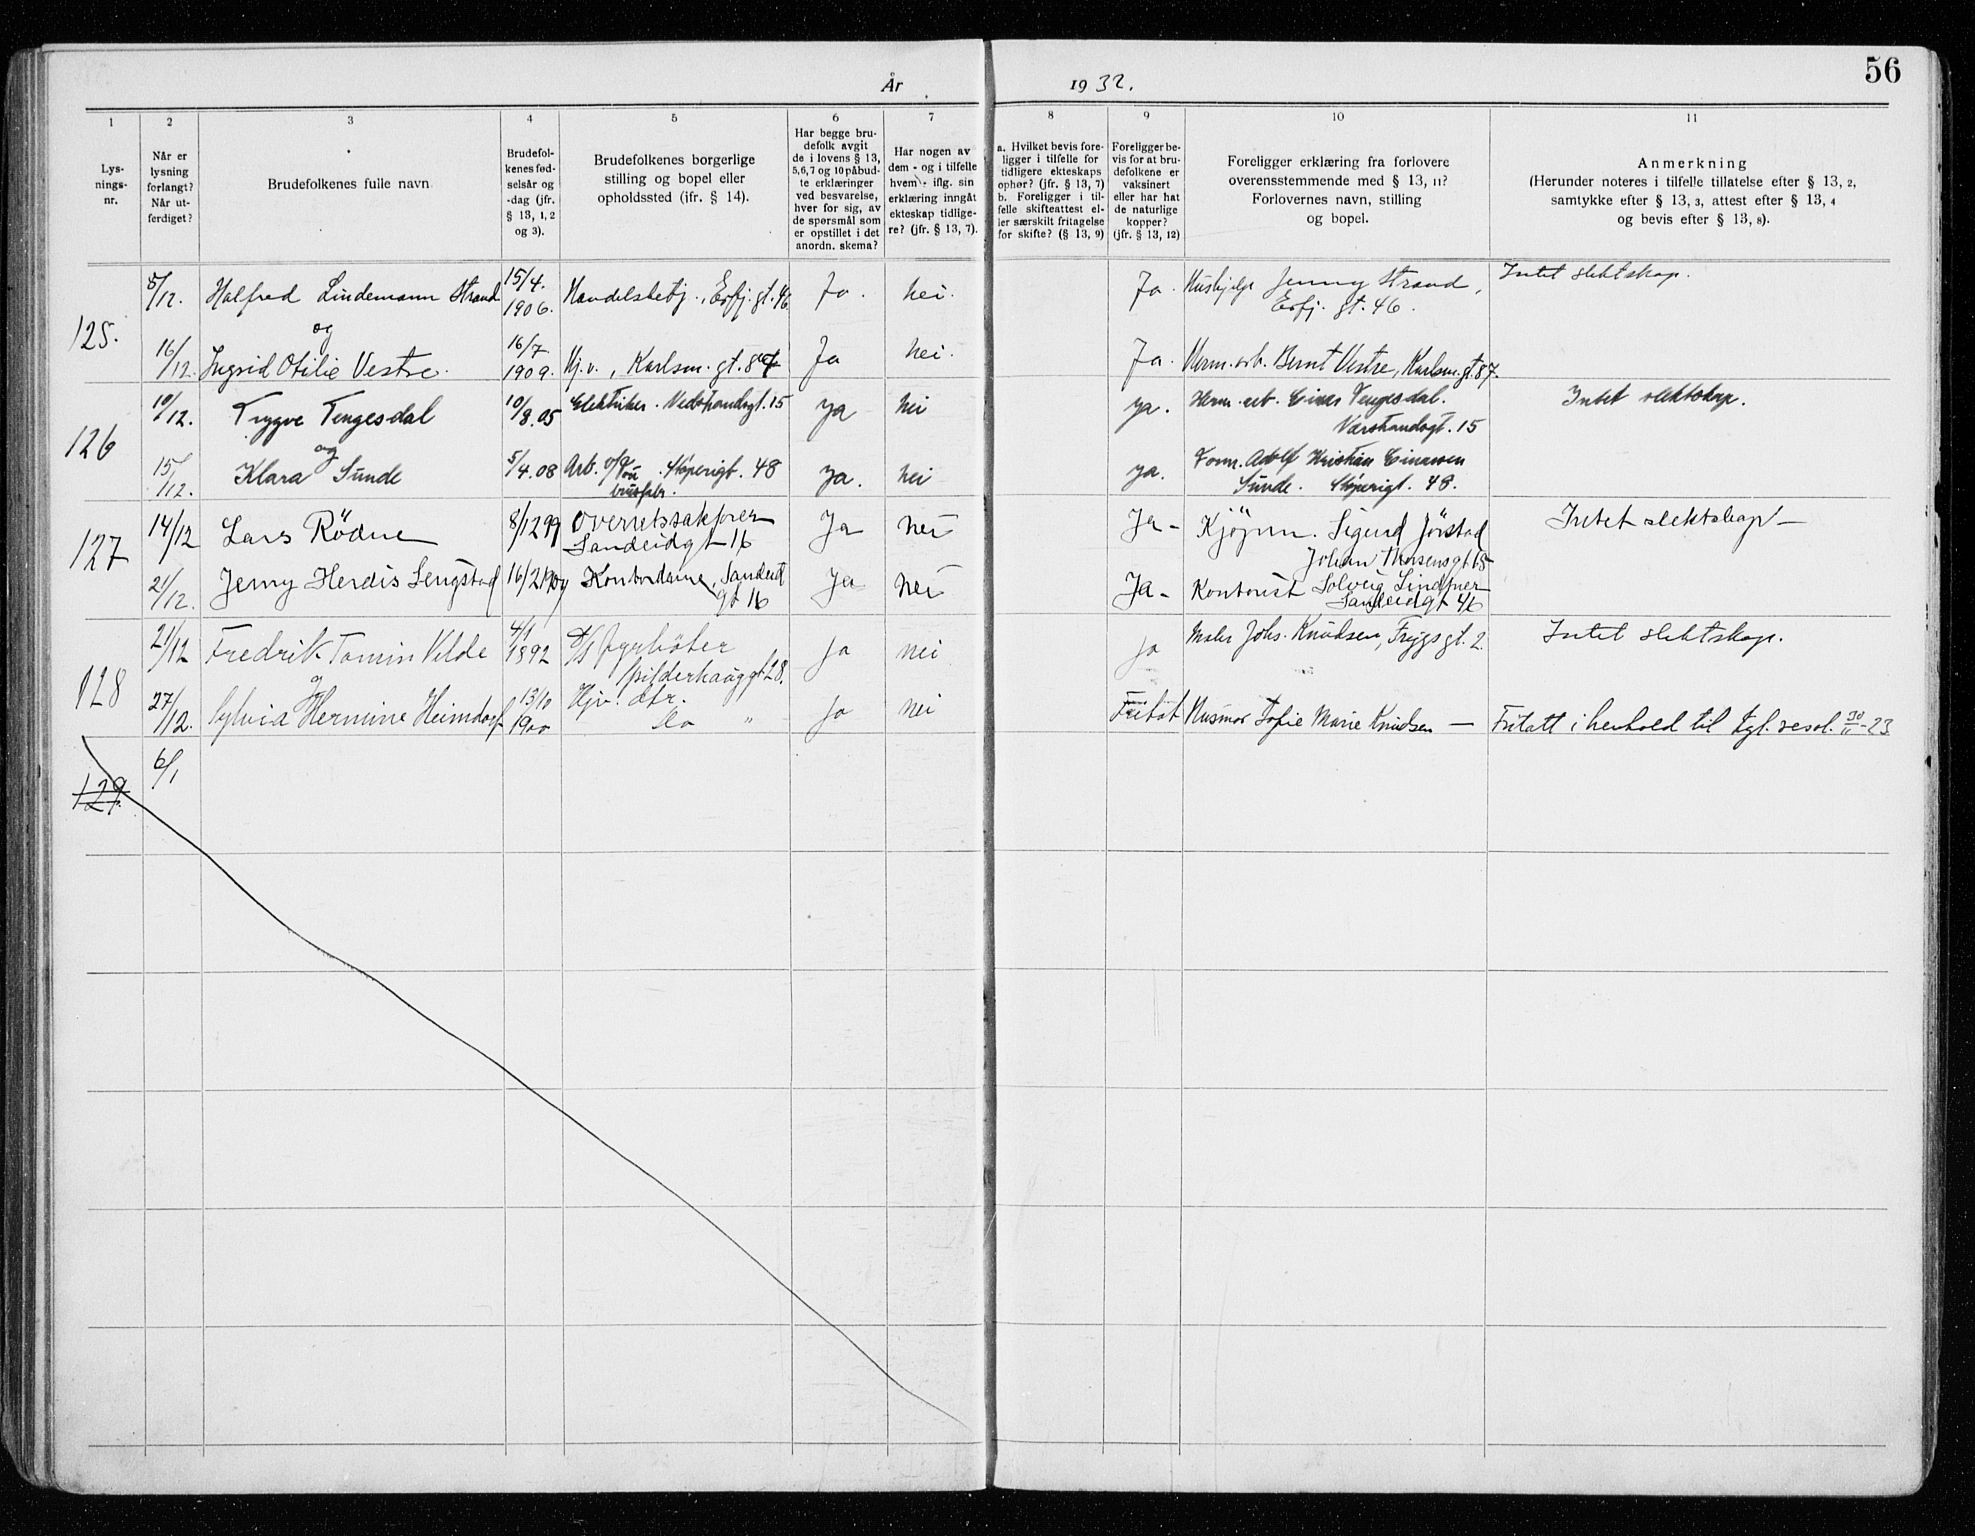 56
År 1932.
1 2 3 4 5 6 7 8 9 10 11
Lys-
nings-
nr.
Når er
lysning
forlangt?
Når ut-
ferdiget?
Brudefolkenes fulle navn
Brudefol-
kenes fød-
selsår og
-dag (jfr.
§ 13, 1, 2
og 3).
Brudefolkenes borgerlige
stilling og bopel eller
opholdssted (jfr. § 14).
Har begge bru-
defolk avgit
de i lovens § 13,
5, 6, 7 og 10 påbud-
te erklæringer
ved besvarelse,
hver for sig, av
de spørsmål som
er opstillet i det
anordn. skema?
Har nogen av
dem - og i tilfelle
hvem - iflg. sin
erklæring inngått
ekteskap tidlige-
re? (jfr. § 13, 7).
a. Hvilket bevis fore-
ligger i tilfelle for
tidligere ekteskaps
ophør? (jfr. § 13, 7)
b. Foreligger i til-
felle skifteattest el-
ler særskilt fritagelse
for skifte? (§ 13, 9)
Foreligger be-
vis for at bru-
defolkene er
vaksinert
eller har hat
de naturlige
kopper?
(jfr. § 13, 12)
Foreligger erklæring fra forlovere
overensstemmende med § 13, 11?
Forlovernes navn, stilling
og bopel.
Anmerkning
(Herunder noteres i tilfelle tillatelse efter § 13, 2,
samtykke efter § 13, 3, attest efter § 13, 4
og bevis efter § 13, 8).
125.
8/12. Halfred Lindemann Strand 15/4. 1906. Handelsbetj., Erfj. gt. 46. Ja. nei. Ja. Hushjelp Jenny Strand, Erfj. gt. 46. Intet slektskap.
og
16/12. Ingrid Otilie Vestre. 16/7 1909. Hj.v., Karlsm. gt. 87 Ja nei. Ja. Herm. arb. Bernt Vestre, Karlsm. gt. 87.
126
10/12. Trygve Tengesdal 10/8. 05 Elektriker. 15 ja nei ja. Herm. arb. Einar Tengesdal. 15 Intet slektskap.
og
15/12. Klara Sunde 5/4. 08 Arb. 48 ja. nei ja. Form. Adolf Kristian Einarsen Sunde. Støperigt. 48.
127
14/12 Lars Rödne 8/12 99 Overretssakfører Sandeidgt 16 Ja nei Ja - Kjøpm. Sigurd Jörstad Johan Thorsensgt 15 Intet slektskap -
21/12. Jenny Herdis Lengstad 16/2 1909 Kontordame, Sandeid gt 16 Ja nei Ja - Kontorist Solveig Lindtner Sandeidgt 46
128
21/12 Fredrik Tomin Velde 4/1 1892 D/S Fyrbøter Spilderhauggt 28. ja nei ja Maler Johs. Knudsen, Tryggsgt. 2. Intet slektskap.
og
27/12. Sylvia Hermine Heimdorf 13/10 1900 Hjv. dtr. do " ja nei Fritat Husmor Sofie Marie Knudsen - Fritatt i henhold til kgl. resol. 30/11-23
129. 6/1